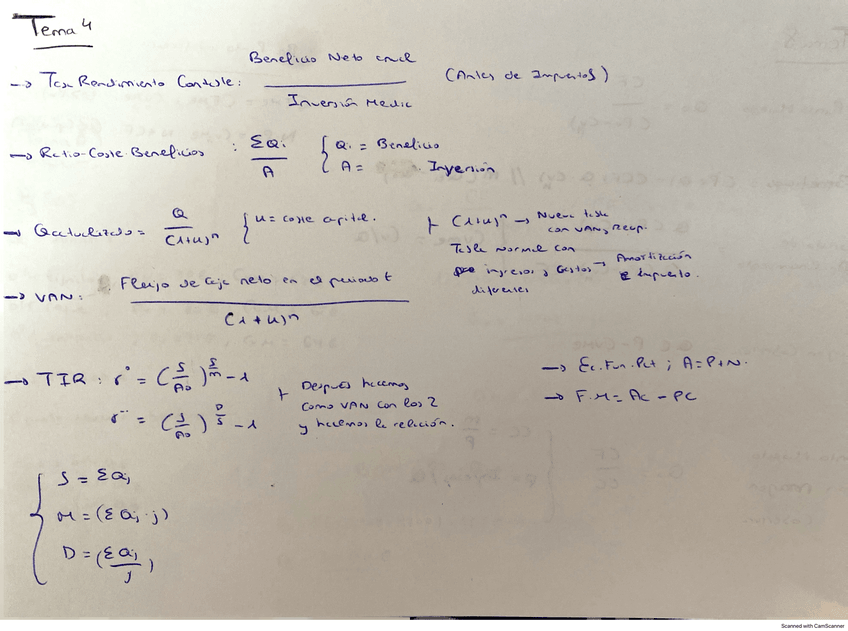 Tema 4
→ Tasa Rendimiento Contable: Beneficio Neto anual / Inversión Media (Antes de Impuestos)
→ Ratio-Coste Beneficios : ΣQi / A { Qi = Beneficio
A = Inversión
→ Qactualizado = Q / (1+u)^n { u = coste capital. + (1+u)^n → Nueva tabla
con VAN y Recup.
Tabla normal con
que ingresos y Gastos → Amortización
e impuesto.
diferentes
→ VAN: Flujo de caja neto en el periodo t / (1+u)^n
→ TIR: r' = (S/A0)^(S/m) - 1
r'' = (S/A0)^(D/S) - 1
+ Después hacemos
como VAN con los 2
y hacemos la relación.
→ Ec. Fun. Pat ; A=P+N.
→ F.M = AC - PC
{ S = ΣQj
M = (ΣQj · j)
D = (ΣQj / j)
Scanned with CamScanner